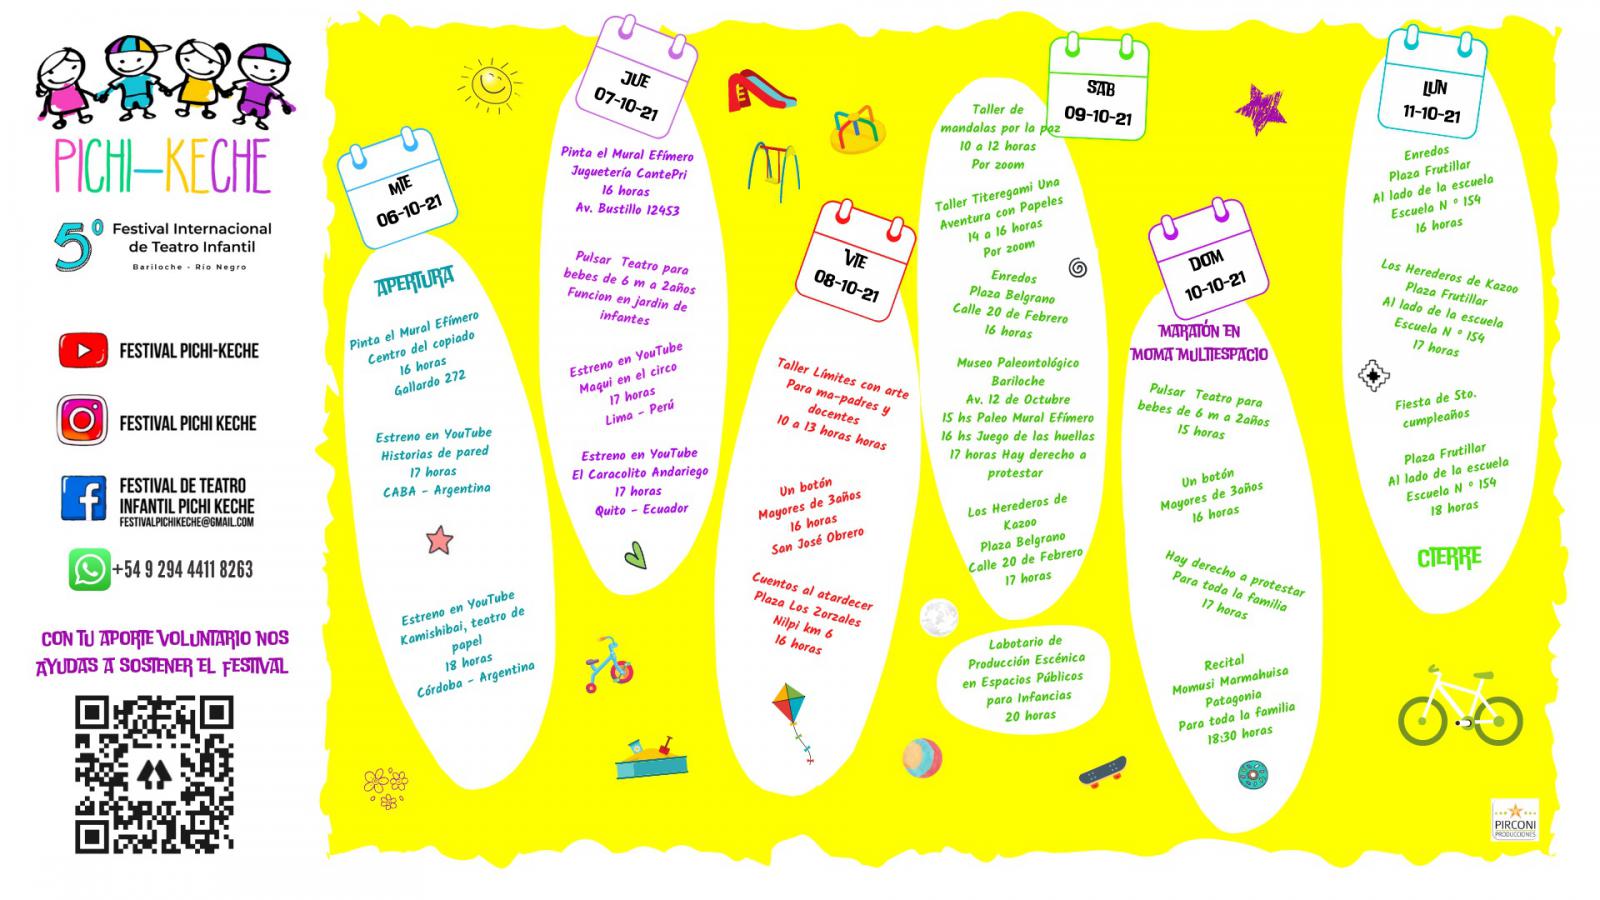 PICHI-KECHE
5º Festival Internacional
de Teatro Infantil
Bariloche - Río Negro
FESTIVAL PICHI-KECHE
FESTIVAL PICHI KECHE
FESTIVAL DE TEATRO
INFANTIL PICHI KECHE
FESTIVALPICHIKECHE@GMAIL.COM
+54 9 294 4411 8263
CON TU APORTE VOLUNTARIO NOS
AYUDAS A SOSTENER EL FESTIVAL
MIE
06-10-21
APERTURA
Pinta el Mural Efímero
Centro del copiado
16 horas
Gallardo 272
Estreno en YouTube
Historias de pared
17 horas
CABA - Argentina
Estreno en YouTube
Kamishibai, teatro de
papel
18 horas
Córdoba - Argentina
JUE
07-10-21
Pinta el Mural Efímero
Juguetería CantePri
16 horas
Av. Bustillo 12453
Pulsar Teatro para
bebes de 6 m a 2años
Funcion en jardin de
infantes
Estreno en YouTube
Maqui en el circo
17 horas
Lima - Perú
Estreno en YouTube
El Caracolito Andariego
17 horas
Quito - Ecuador
VIE
08-10-21
Taller Límites con arte
Para ma-padres y
docentes
10 a 13 horas horas
Un botón
Mayores de 3años
16 horas
San José Obrero
Cuentos al atardecer
Plaza Los Zorzales
Nilpi km 6
16 horas
SAB
09-10-21
Taller de
mandalas por la paz
10 a 12 horas
Por zoom
Taller Titeregami Una
Aventura con Papeles
14 a 16 horas
Por zoom
Enredos
Plaza Belgrano
Calle 20 de Febrero
16 horas
Museo Paleontológico
Bariloche
Av. 12 de Octubre
15 hs Paleo Mural Efímero
16 hs Juego de las huellas
17 horas Hay derecho a
protestar
Los Herederos de
Kazoo
Plaza Belgrano
Calle 20 de Febrero
17 horas
Labotario de
Producción Escénica
en Espacios Públicos
para Infancias
20 horas
DOM
10-10-21
MARATÓN EN
MOMA MULTIESPACIO
Pulsar Teatro para
bebes de 6 m a 2años
15 horas
Un botón
Mayores de 3años
16 horas
Hay derecho a protestar
Para toda la familia
17 horas
Recital
Momusi Marmahuisa
Patagonia
Para toda la familia
18:30 horas
LUN
11-10-21
Enredos
Plaza Frutillar
Al lado de la escuela
Escuela N º 154
16 horas
Los Herederos de Kazoo
Plaza Frutillar
Al lado de la escuela
Escuela N º 154
17 horas
Fiesta de 5to.
cumpleaños
Plaza Frutillar
Al lado de la escuela
Escuela N º 154
18 horas
CIERRE
PIRCONI
PRODUCCIONES